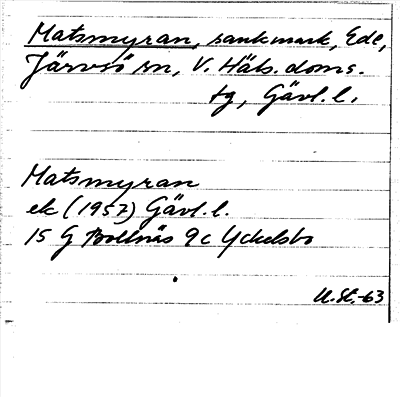 Matsmyran, sankmark, Ede,
Järvsö sn, V. Häls. doms.
tg, Gävl. l.
Matsmyran
ek (1957) Gävl. l.
15 G Bollnäs 9c Yckelsbo
U.St.-63